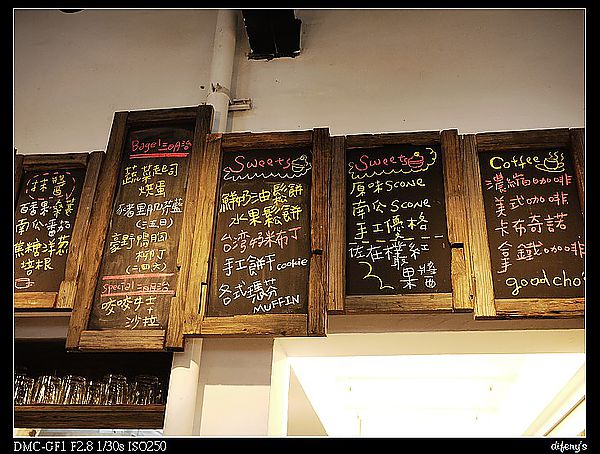 抹醬
百香果桑葚
南瓜番茄
焦糖洋蔥
培根
Bagel三明治
蔬菜起司
烘蛋
(三五日)
(二四六)
Special三明治
沙拉
Sweets
鮮奶油鬆餅
水果鬆餅
台灣特米布丁
手工餅干 cookie
各式瑪芬
MUFFIN
Sweets
原味scone
南瓜scone
手工優格
佐在檏紅
果醬
Coffee
濃縮咖啡
美式咖啡
卡布奇諾
拿鐵咖啡
good cho
DMC-GF1 F2.8 1/30s ISO250
difeny's